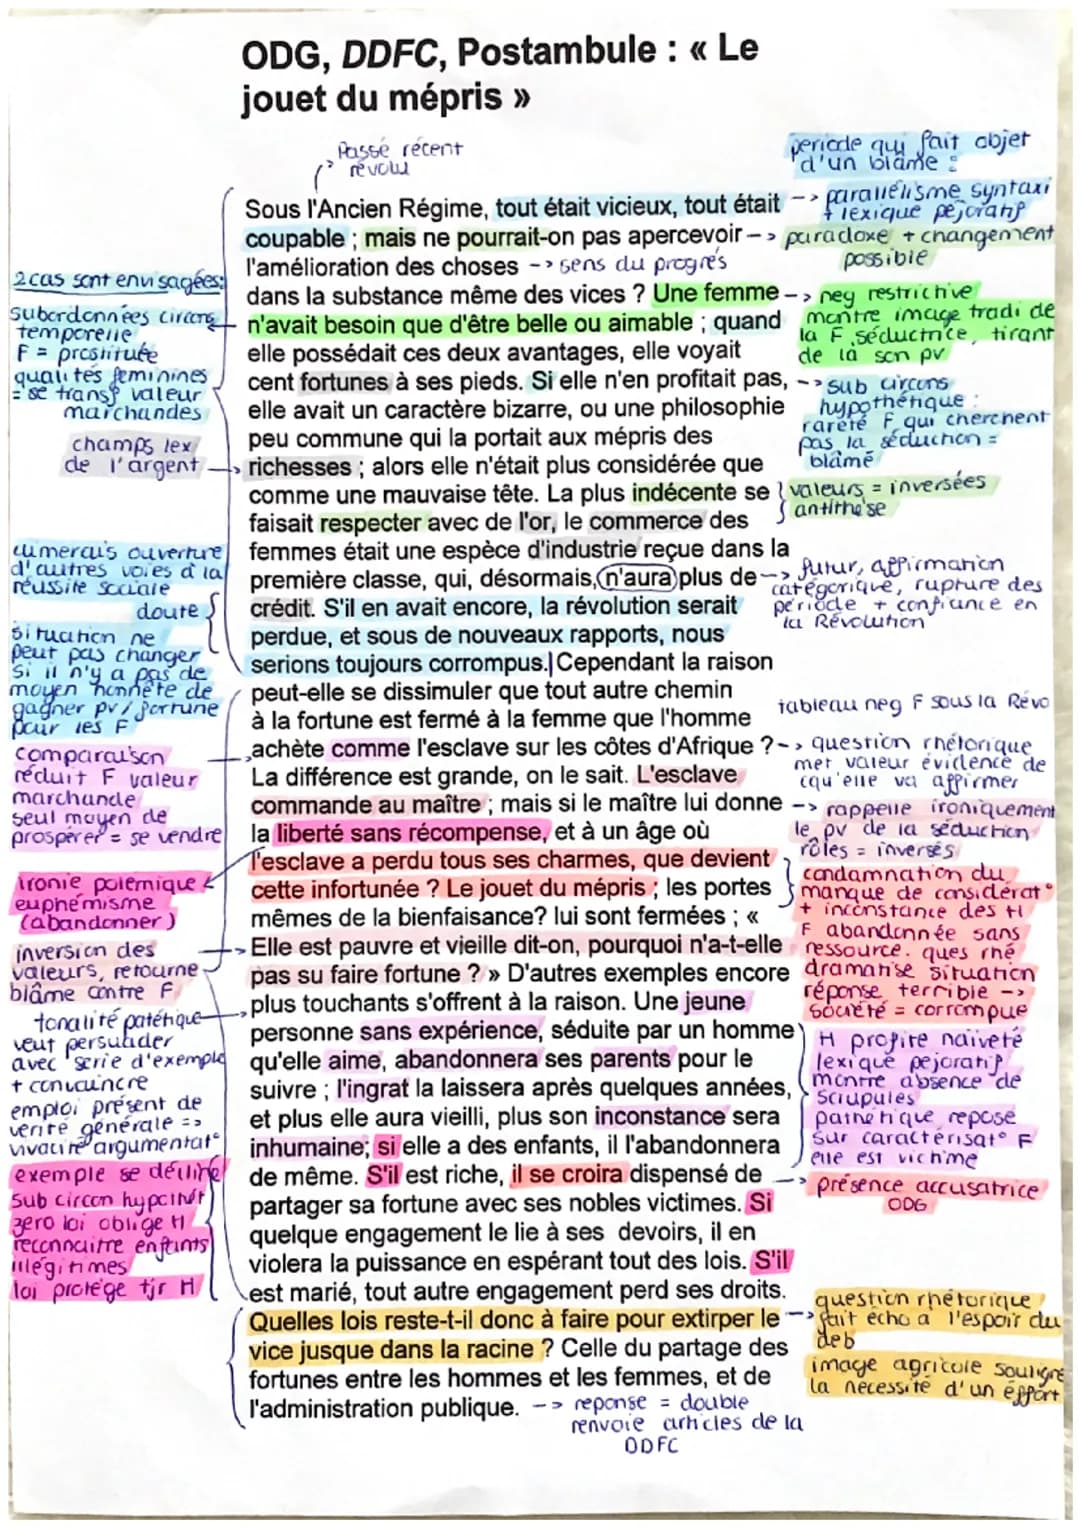 ODG, DDFC, Postambule : « Le
jouet du mépris »
Passé récent
révolu
Sous l'Ancien Régime, tout était vicieux, tout était
coupable ; mais ne pourrait-on pas apercevoir
l'amélioration des choses -> sens du progrès
dans la substance même des vices ? Une femme
n'avait besoin que d'être belle ou aimable ; quand
elle possédait ces deux avantages, elle voyait
cent fortunes à ses pieds. Si elle n'en profitait pas,
elle avait un caractère bizarre, ou une philosophie
peu commune qui la portait aux mépris des
richesses ; alors elle n'était plus considérée que
comme une mauvaise tête. La plus indécente se
faisait respecter avec de l'or, le commerce des
femmes était une espèce d'industrie reçue dans la
première classe, qui, désormais, n'aura plus de
crédit. S'il en avait encore, la révolution serait
perdue, et sous de nouveaux rapports, nous
serions toujours corrompus.| Cependant la raison
peut-elle se dissimuler que tout autre chemin
à la fortune est fermé à la femme que l'homme
achète comme l'esclave sur les côtes d'Afrique ?
La différence est grande, on le sait. L'esclave
commande au maître ; mais si le maître lui donne
la liberté sans récompense, et à un âge où
l'esclave a perdu tous ses charmes, que devient
cette infortunée ? Le jouet du mépris ; les portes
mêmes de la bienfaisance? lui sont fermées ; «
Elle est pauvre et vieille dit-on, pourquoi n'a-t-elle
pas su faire fortune ? » D'autres exemples encore
plus touchants s'offrent à la raison. Une jeune
personne sans expérience, séduite par un homme
qu'elle aime, abandonnera ses parents pour le
suivre ; l'ingrat la laissera après quelques années,
et plus elle aura vieilli, plus son inconstance sera
inhumaine; si elle a des enfants, il l'abandonnera
de même. S'il est riche, il se croira dispensé de
partager sa fortune avec ses nobles victimes. Si
quelque engagement le lie à ses devoirs, il en
violera la puissance en espérant tout des lois. S'il
est marié, tout autre engagement perd ses droits.
Quelles lois reste-t-il donc à faire pour extirper le
vice jusque dans la racine ? Celle du partage des
fortunes entre les hommes et les femmes, et de
l'administration publique. -> reponse = double
renvoie articles de la
DDFC
2 cas sont envisagées:
subordonnées circons
temporelle
F = prostituée
qualités feminines
= se transf valeur
marchandes
champs lex
de l'argent
ouverture
d'autres voies à la
réussite sociale
doute
situation ne
peut pas changer
si il n'y a pas de
moyen honnête de
gagner pv / fortune
pour les F
comparaison
réduit F valeur
marchande
seul moyen de
prospérer = se vendre
ironie polemique
euphemisme
(abandonner)
inversion des
valeurs, retourne
blâme contre F
tonalité patétique
veut persuader
avec serie d'exemple
+ convaincre
emploi présent de
verité générale =>
vivacité argumentat°
exemple se décline
sub circon hypothét
zero loi oblige H
reconnaitre enfants
illégitimes
loi protège tjr H
periode qui fait objet
d'un blâme :
-> parallélisme syntaxi
+ lexique péjoratif
-> paradoxe + changement
possible
-> neg restrictive
montre image tradi de
la F séductrice, tirant
de là son pv
-> sub circons
hypothétique :
rareté F qui cherchent
pas la séduction =
blâmé
valeurs = inversées
antithèse
-> futur, affirmation
catégorique, rupture des
periode + confiance en
la Révolution
tableau neg F sous la Révo
-> question rhétorique
met valeur évidence de
cqu'elle va affirmer
-> rappelle ironiquement
le pv de la séduction
rôles = inversés
condamnation du
manque de considérat°
+ inconstance des H
F abandonnée sans
ressource. ques rhé
dramatise situation
réponse terrible ->
société = corrompue
H profite naïveté
lexique pejoratif
montre absence de
scrupules
pathétique repose
sur caractérisat° F
elle est victime
-> présence accusatrice
ODG
question rhétorique
-> fait écho a l'espoir du
deb
image agricole souligne
la nécessité d'un effort